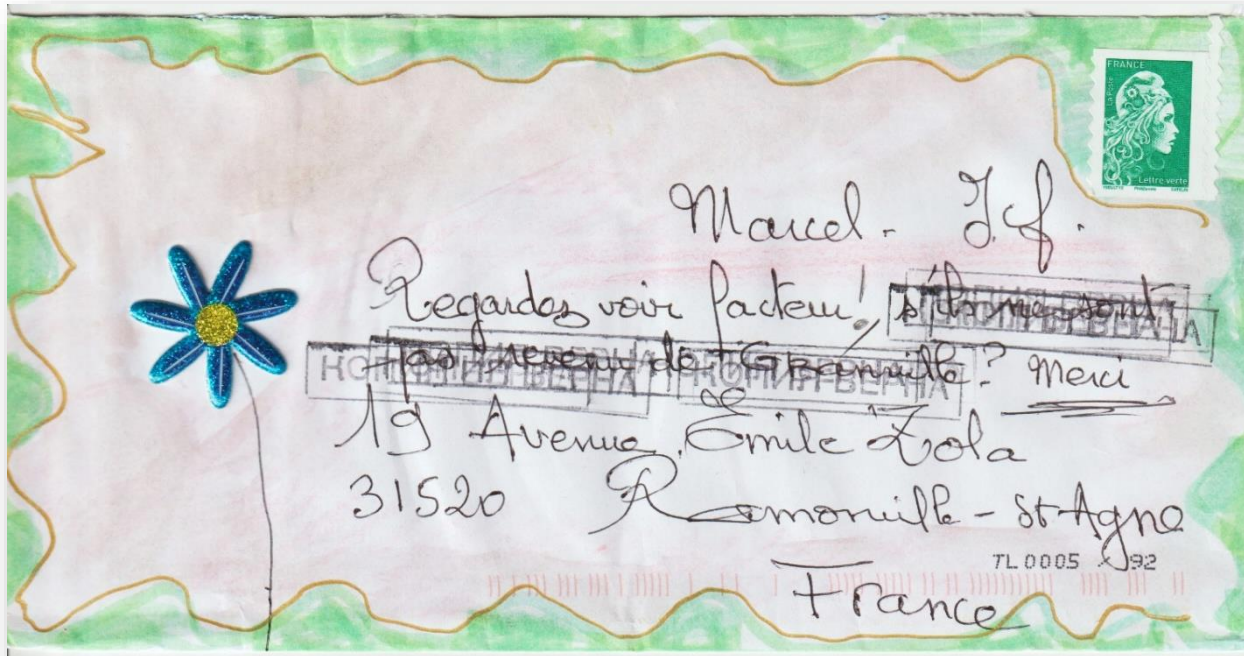 FRANCE
La Poste
Lettre verte
Marcel. J.f.
Regardez voir facteur! s'ils ne sont
pas revenu de Granville? Merci
КОПИЯ ВЕРНА
КОПИЯ ВЕРНА
КОПИЯ ВЕРНА
19 Avenue Emile Zola
31520 Ramonville - St-Agne
TL0005 92
France